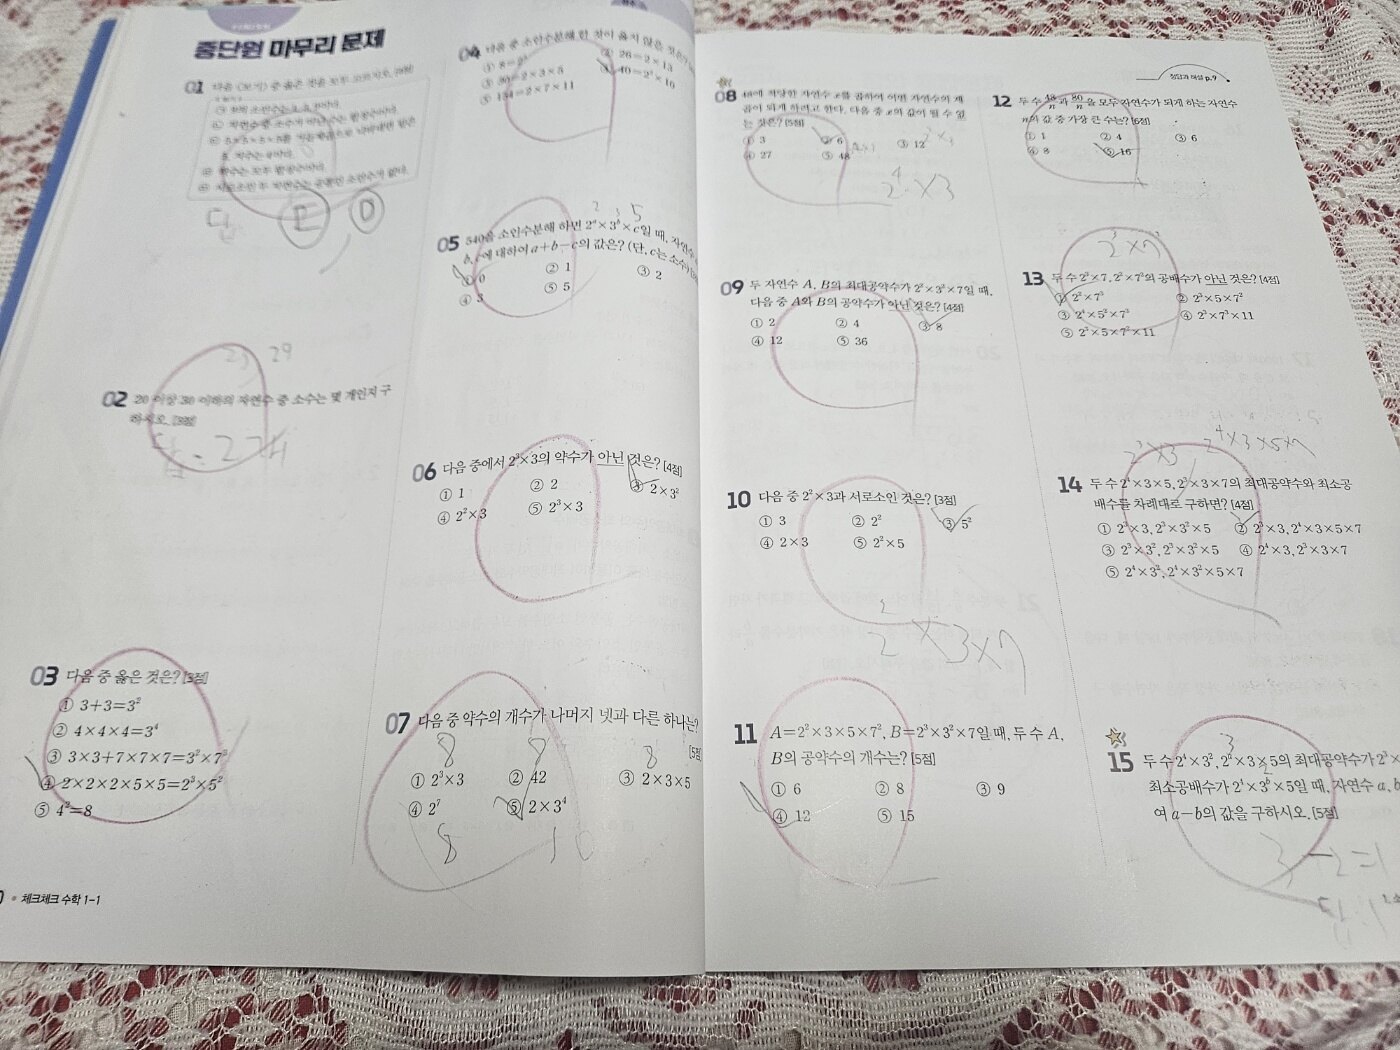 중단원 마무리 문제
01 다음 〈보기〉 중 옳은 것을 모두 고르시오.
답
02 20 이상 30 이하의 자연수 중 소수는 몇 개인지 구
하시오. [3점]
23, 29
답: 2개
03 다음 중 옳은 것은? [3점]
① 3+3=3²
② 4×4×4=3⁴
③ 3×3+7×7×7=3²×7³
④ 2×2×2×5×5=2³×5²
⑤ 4²=8
체크체크 수학 1-1
04 다음 중 소인수분해 한 것이 옳지 않은 것은?
① 8=2³ ② 26=2×13
③ 30=2×3×5 ④ 40=2²×10
⑤ 154=2×7×11
2 3 5
05 540을 소인수분해 하면 2ᵃ×3ᵇ×c일 때, 자연수
b, c에 대하여 a+b-c의 값은? (단, c는 소수)
① 0 ② 1 ③ 2
④ 3 ⑤ 5
06 다음 중에서 2³×3의 약수가 아닌 것은? [4점]
① 1 ② 2 ③ 2×3²
④ 2²×3 ⑤ 2³×3
07 다음 중 약수의 개수가 나머지 넷과 다른 하나는?
[5점]
8 8 8
① 2³×3 ② 42 ③ 2×3×5
④ 2⁷ ⑤ 2×3⁴
8 10
정답과 해설 p.9
08 48에 적당한 자연수 x를 곱하여 어떤 자연수의 제
곱이 되게 하려고 한다. 다음 중 x의 값이 될 수 없
는 것은? [5점]
① 3 ② 6 ③ 12
④ 27 ⑤ 48
2²×3
2⁴×3
09 두 자연수 A, B의 최대공약수가 2²×3²×7일 때,
다음 중 A와 B의 공약수가 아닌 것은? [4점]
① 2 ② 4 ③ 8
④ 12 ⑤ 36
10 다음 중 2²×3과 서로소인 것은? [3점]
① 3 ② 2² ③ 5²
④ 2×3 ⑤ 2²×5
2²×3×7
11 A=2²×3×5×7², B=2³×3²×7일 때, 두 수 A,
B의 공약수의 개수는? [5점]
① 6 ② 8 ③ 9
④ 12 ⑤ 15
12 두 수 48/n과 80/n을 모두 자연수가 되게 하는 자연수
n의 값 중 가장 큰 수는? [6점]
① 1 ② 4 ③ 6
④ 8 ⑤ 16
13 두 수 2³×7, 2²×7²의 공배수가 아닌 것은? [4점]
① 2²×7³ ② 2³×5×7²
③ 2⁴×5²×7³ ④ 2³×7³×11
⑤ 2³×5×7²×11
2³×3 2⁴×3×5×7
14 두 수 2⁴×3×5, 2³×3×7의 최대공약수와 최소공
배수를 차례대로 구하면? [4점]
① 2³×3, 2³×3²×5 ② 2³×3, 2⁴×3×5×7
③ 2³×3², 2³×3²×5 ④ 2⁴×3, 2³×3×7
⑤ 2⁴×3², 2⁴×3²×5×7
15 두 수 2⁴×3², 2ᵃ×3×5의 최대공약수가 2³×
최소공배수가 2⁴×3ᵇ×5일 때, 자연수 a, b
여 a-b의 값을 구하시오. [5점]
3-2=1
답: 1